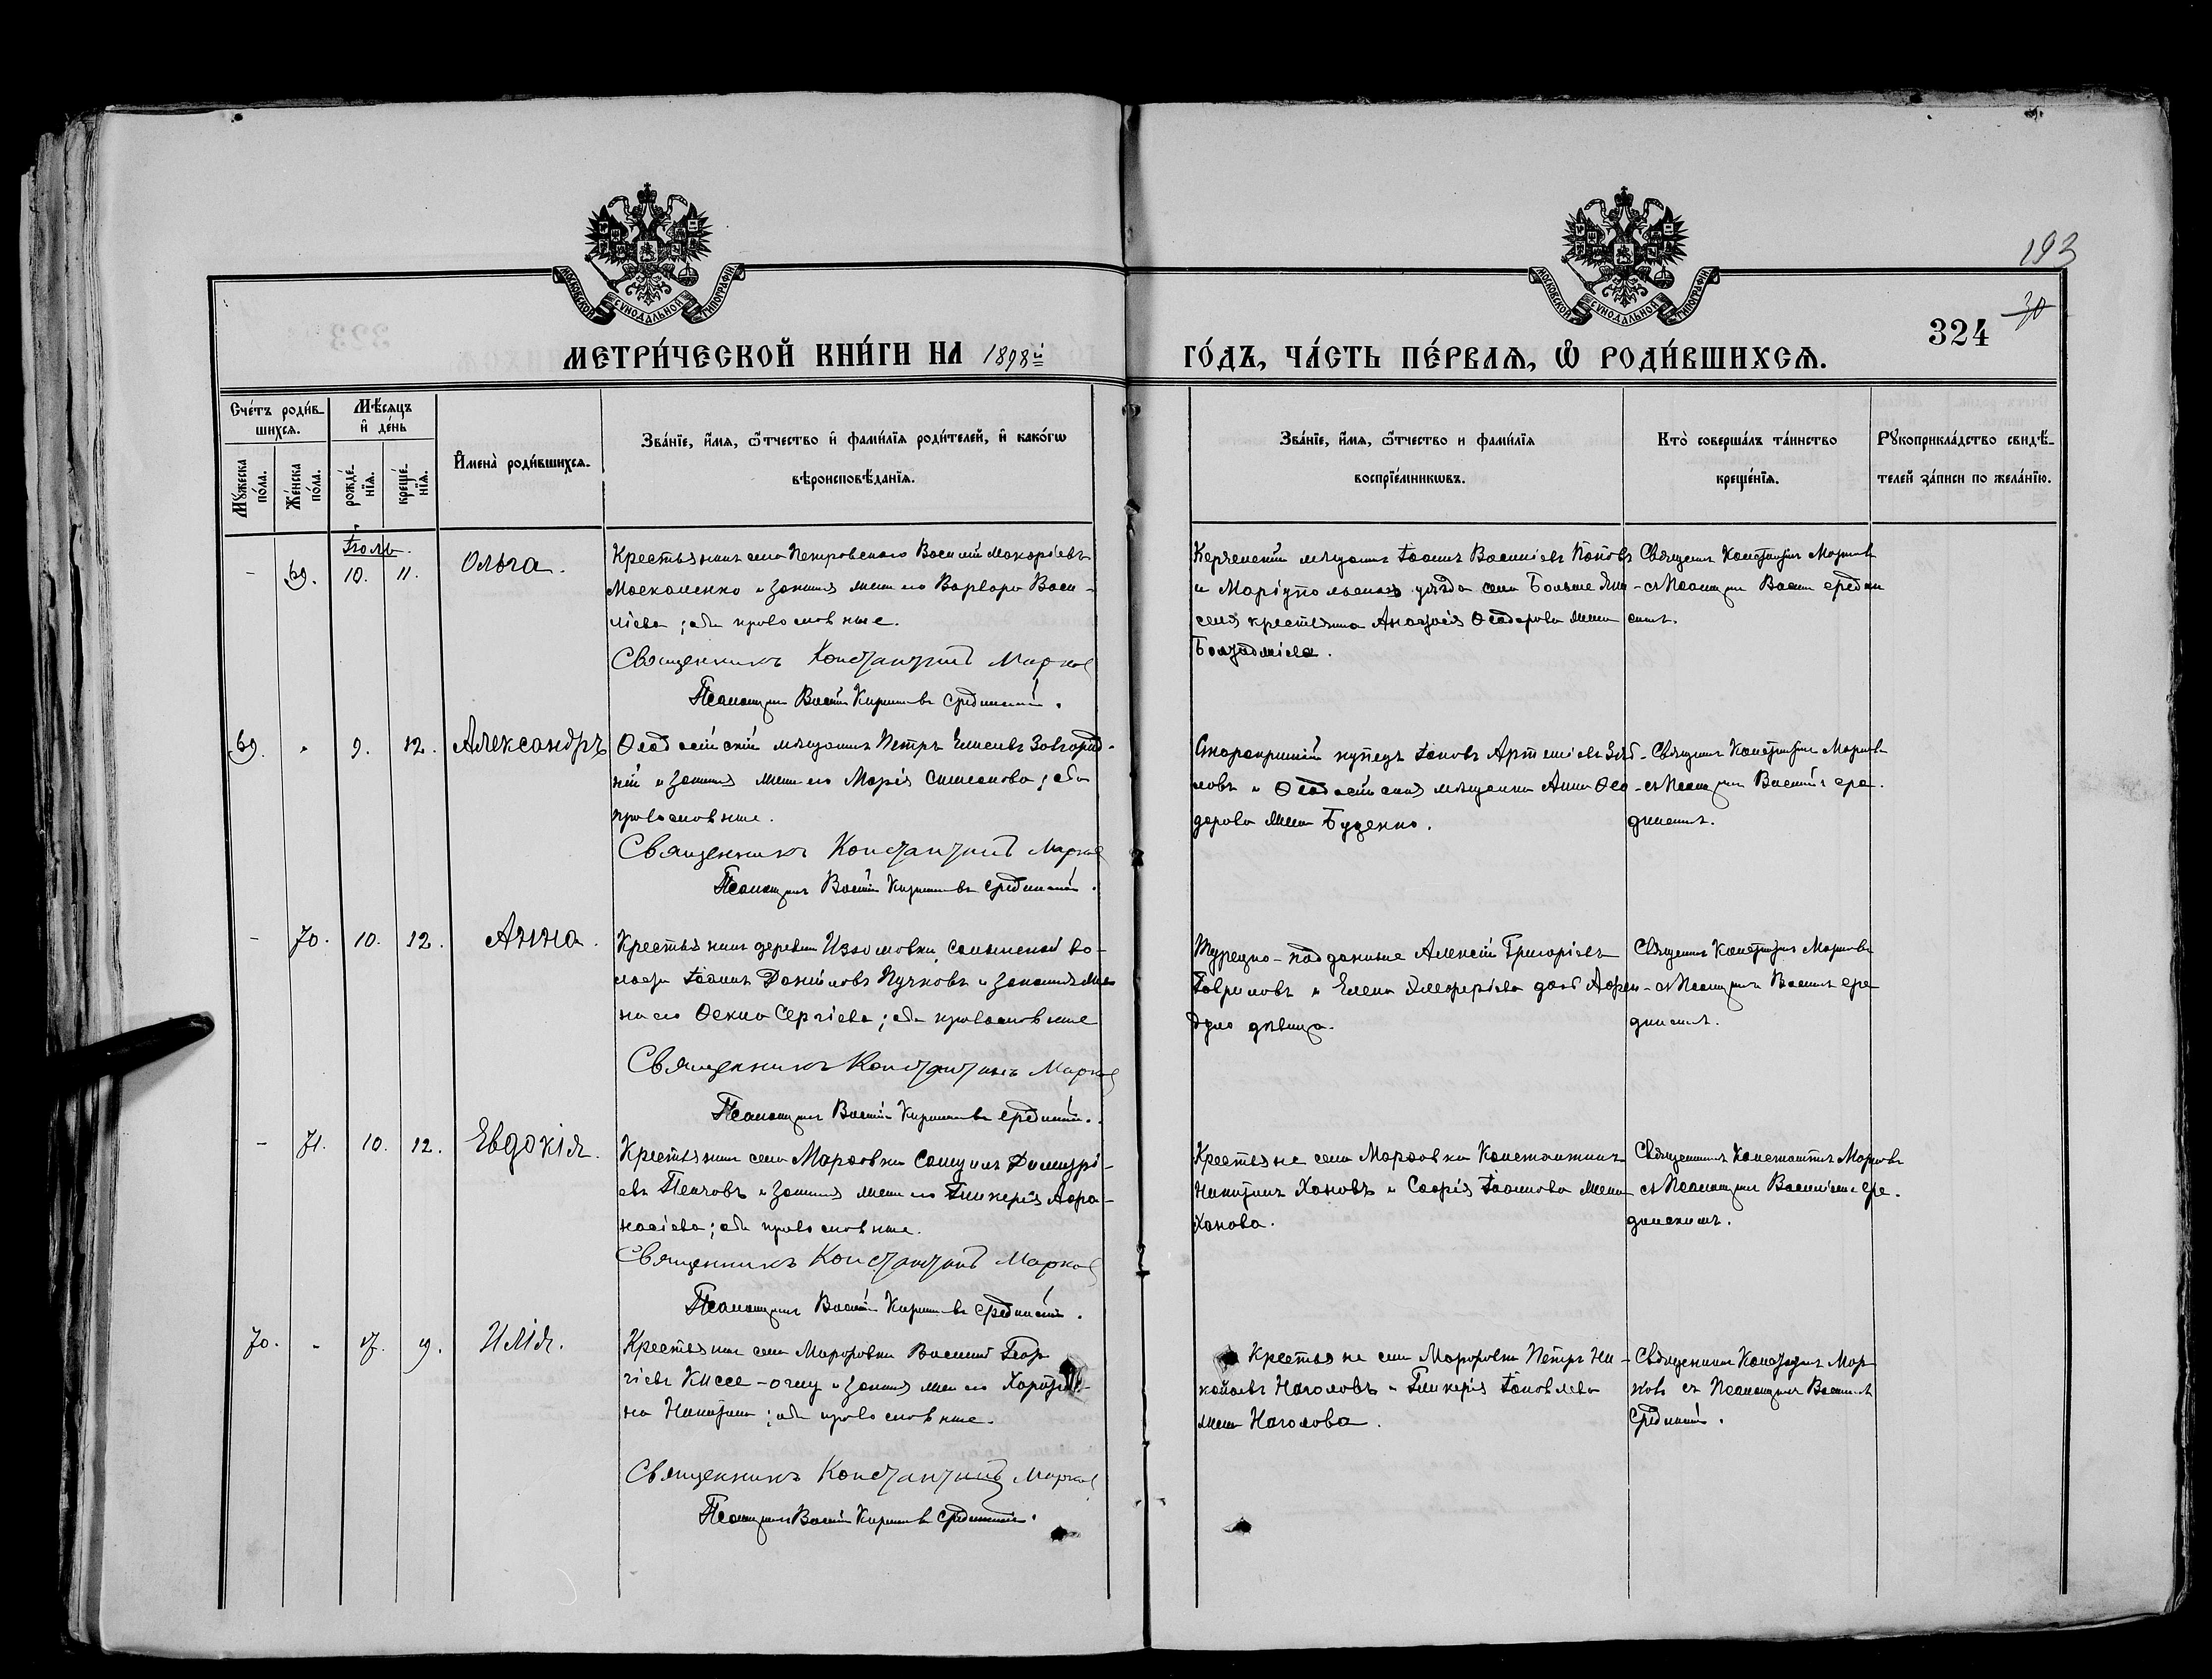 193
30
324
МОСКОВСКОЙ СУНОДАЛЬНОЙ ТИПОГРАФІИ
МОСКОВСКОЙ СУНОДАЛЬНОЙ ТИПОГРАФІИ
МЕТРИ́ЧЕСКОЙ КНИ́ГИ НА 1898й
ГО́ДЪ, ЧА́СТЬ ПЕ́РВАѦ, Ѡ РОДИ́ВШИХСѦ.
Сче́тъ роди́в-
шихсѧ.
Мꙋ́жеска
по́ла.
Же́нска
по́ла.
Мѣ́сѧцъ
и҆ де́нь
рожде́-
нїѧ.
креще́-
нїѧ.
И҆мена̀ роди́вшихсѧ.
Зва́нїе, и҆́мѧ, ѻ҆́тчество и҆ фами́лїѧ роди́телей, и҆ како́гѡ
вѣроисповѣ́данїѧ.
Зва́нїе, и҆́мѧ, ѻ҆́тчество и фами́лїѧ
воспрїе́мникѡвъ.
Кто̀ соверша́лъ та́инство
креще́нїѧ.
Рꙋкоприкла́дство свидѣ́-
телей за́писи по жела́нїю.
Іюль.
- 69. 10. 11. Ольга.
Крестьянинъ села Петровскаго Василій Макаріевъ
Москаленко и законная жена его Варвара Васи-
ліева; оба православные.
Священникъ Константинъ Марковъ
Псаломщикъ Василій Кирилловъ Срединскій.
Керченскій мѣщанинъ Іоаннъ Василіевъ Поповъ
и Маріупольскаго уѣзда села Больше Яни-
селя крестьянка Анастасія Ѳеодорова жена
Священникъ Константинъ Марковъ
съ Псаломщикомъ Василіемъ Средин
скимъ.
69. - 9. 12. Александръ
Ѳеодосійскій мѣщанинъ Петръ Елисеевъ Завгород-
ній и законная жена его Марія Симеонова; оба
православные.
Священникъ Константинъ Марковъ
Псаломщикъ Василій Кирилловъ Срединскій.
Старокрымскій купецъ Іаковъ Артеміевъ
ловъ и Ѳеодосійская мѣщанка Анна Ѳео-
дорова жена Буценко.
Священникъ Константинъ Марковъ
съ Псаломщикомъ Василіемъ Сре-
динскимъ.
- 70. 10. 12. Анна.
Крестьянинъ деревни Изюмовки, Салынской во-
лости Іоаннъ Даніиловъ Пучковъ и законная же
на его Ѳекла Сергіева; оба православные
Священникъ Константинъ Марковъ
Псаломщикъ Василій Кирилловъ Срединскій.
Турецко-подданные Алексій Григоріевъ
Гавриловъ и Елена Елефѳеріева дочь
дѣвица.
Священникъ Константинъ Марковъ
съ Псаломщикомъ Василіемъ Сре
динскимъ.
- 71. 10. 12. Евдокія.
Крестьянинъ села Марфовки Самуилъ Димитрі-
евъ Пенчовъ и законная жена его Гликерія Аѳа-
насіева; оба православные.
Священникъ Константинъ Марковъ
Псаломщикъ Василій Кирилловъ Срединскій.
Крестьяне села Марфовки Константинъ
Никитинъ Хановъ и Софія Іоаннова жена
Ханова.
Священникъ Константинъ Марковъ
съ Псаломщикомъ Василіемъ Сре-
динскимъ.
70. - 17. 19. Илія.
Крестьянинъ села Марфовки Василій Геор
гіевъ Киссе-оглу и законная жена его Харити-
на Никитина; оба православные.
Священникъ Константинъ Марковъ
Псаломщикъ Василій Кирилловъ Срединскій.
Крестьяне села Марфовки Петръ Ни-
колаевъ Наголовъ и Гликерія Іаковлева
жена Наголова.
Священникъ Константинъ Мар-
ковъ съ Псаломщикомъ Василіемъ
Срединскимъ.